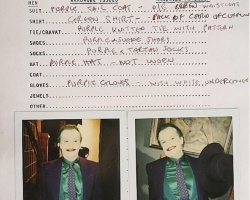 MEN
SUIT. PURPLE TAIL COAT - WAISTCOAT
SHIRT. GREEN SHIRT - PACK OF CARDS
TIE/CRAVAT. PURPLE KNITTED TIE WITH PATTERN
SHOES. PURPLE SUEDE SHOES
SOCKS. PURPLE + TARTAN SOCKS
HAT. PURPLE HAT - NOT WORN
COAT.
GLOVES. PURPLE GLOVES - WITH WHITE
JEWELS.
OTHER.